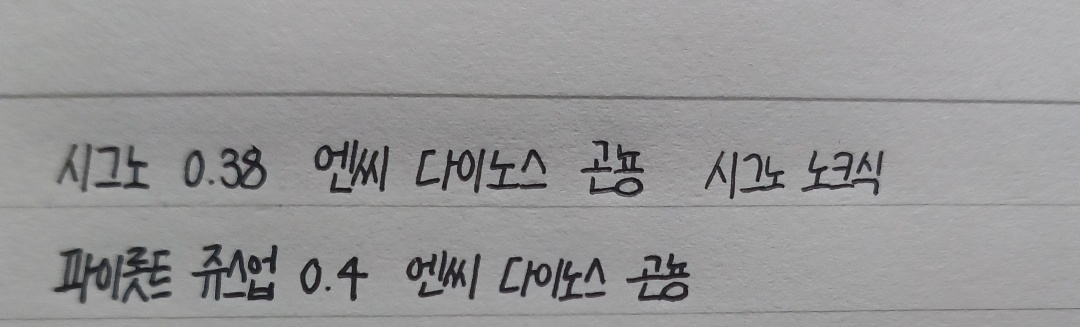 시그노 0.38 엔씨 다이노스 곤뇽 시그노 노크식
파이롯트 쥬스업 0.4 엔씨 다이노스 곤뇽